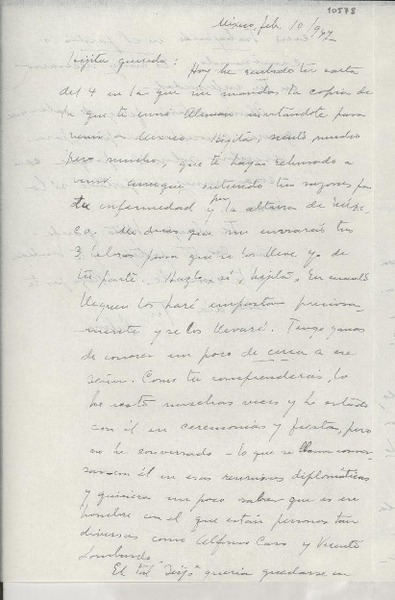 10578
México, feb. 10/947
Hijita querida: Hoy he recibido tu carta
del 4 en la que me mandas la copia de
la que te envió Alemán invitándote para
venir a México. Hijita, siento mucho
pero mucho, que te hayas rehusado a
venir aunque entiendo tus razones por
tu enfermedad y por la altura de Méxi-
co. Me dices que me enviarás tus
3 libros para que se los lleve yo de
tu parte. Hazlo, sí, hijita. En cuanto
lleguen los haré empastar preciosa-
mente y se los llevaré. Tengo ganas
de conocer un poco de cerca a ese
señor. Como tú comprenderás, lo
he visto muchas veces y he estado
con él en ceremonias y fiestas, pero
no he conversado - lo que se llama conver-
sar - con él en esas reuniones diplomáticas
y quisiera un poco saber qué es ese
hombre con el que están personas tan
diversas como Alfonso Caso y Vicente
Lombardo.
El tal "Jefe" quería quedarse en